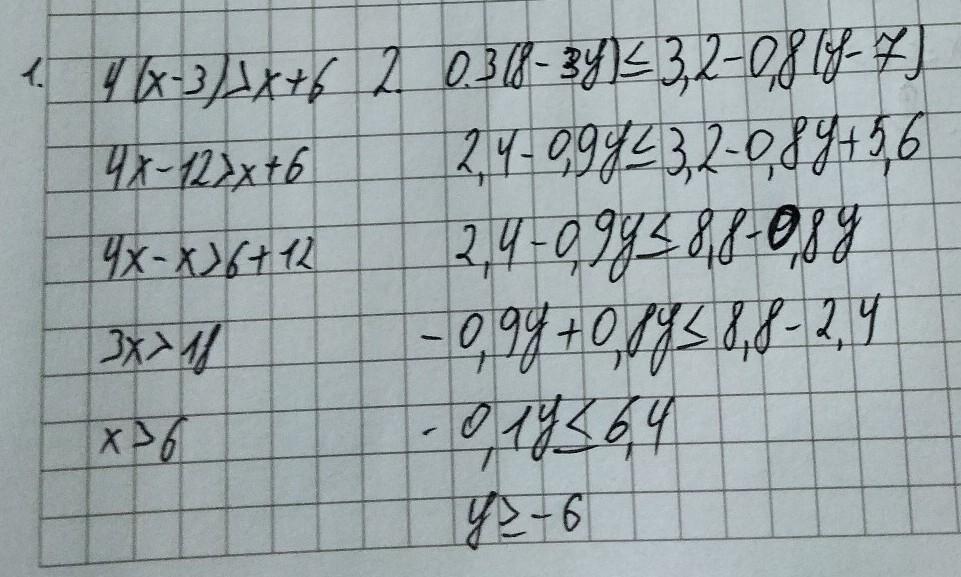 1. 4(x-3)>x+6
4x-12>x+6
4x-x>6+12
3x>18
x>6
2. 0.3(8-3y)≤3,2-0,8(y-7)
2,4-0,9y≤3,2-0,8y+5,6
2,4-0,9y≤8,8-0,8y
-0,9y+0,8y≤8,8-2,4
-0,1y≤6,4
y≥-6